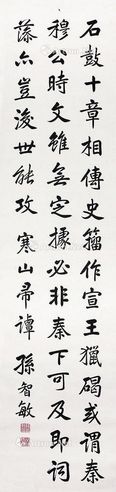 石鼓十章相傳史籀作宣王獵碣或謂秦
穆公時文雖無定據必非秦下可及即詞
藻亦豈後世能攷 寒山帚譚 孫智敏